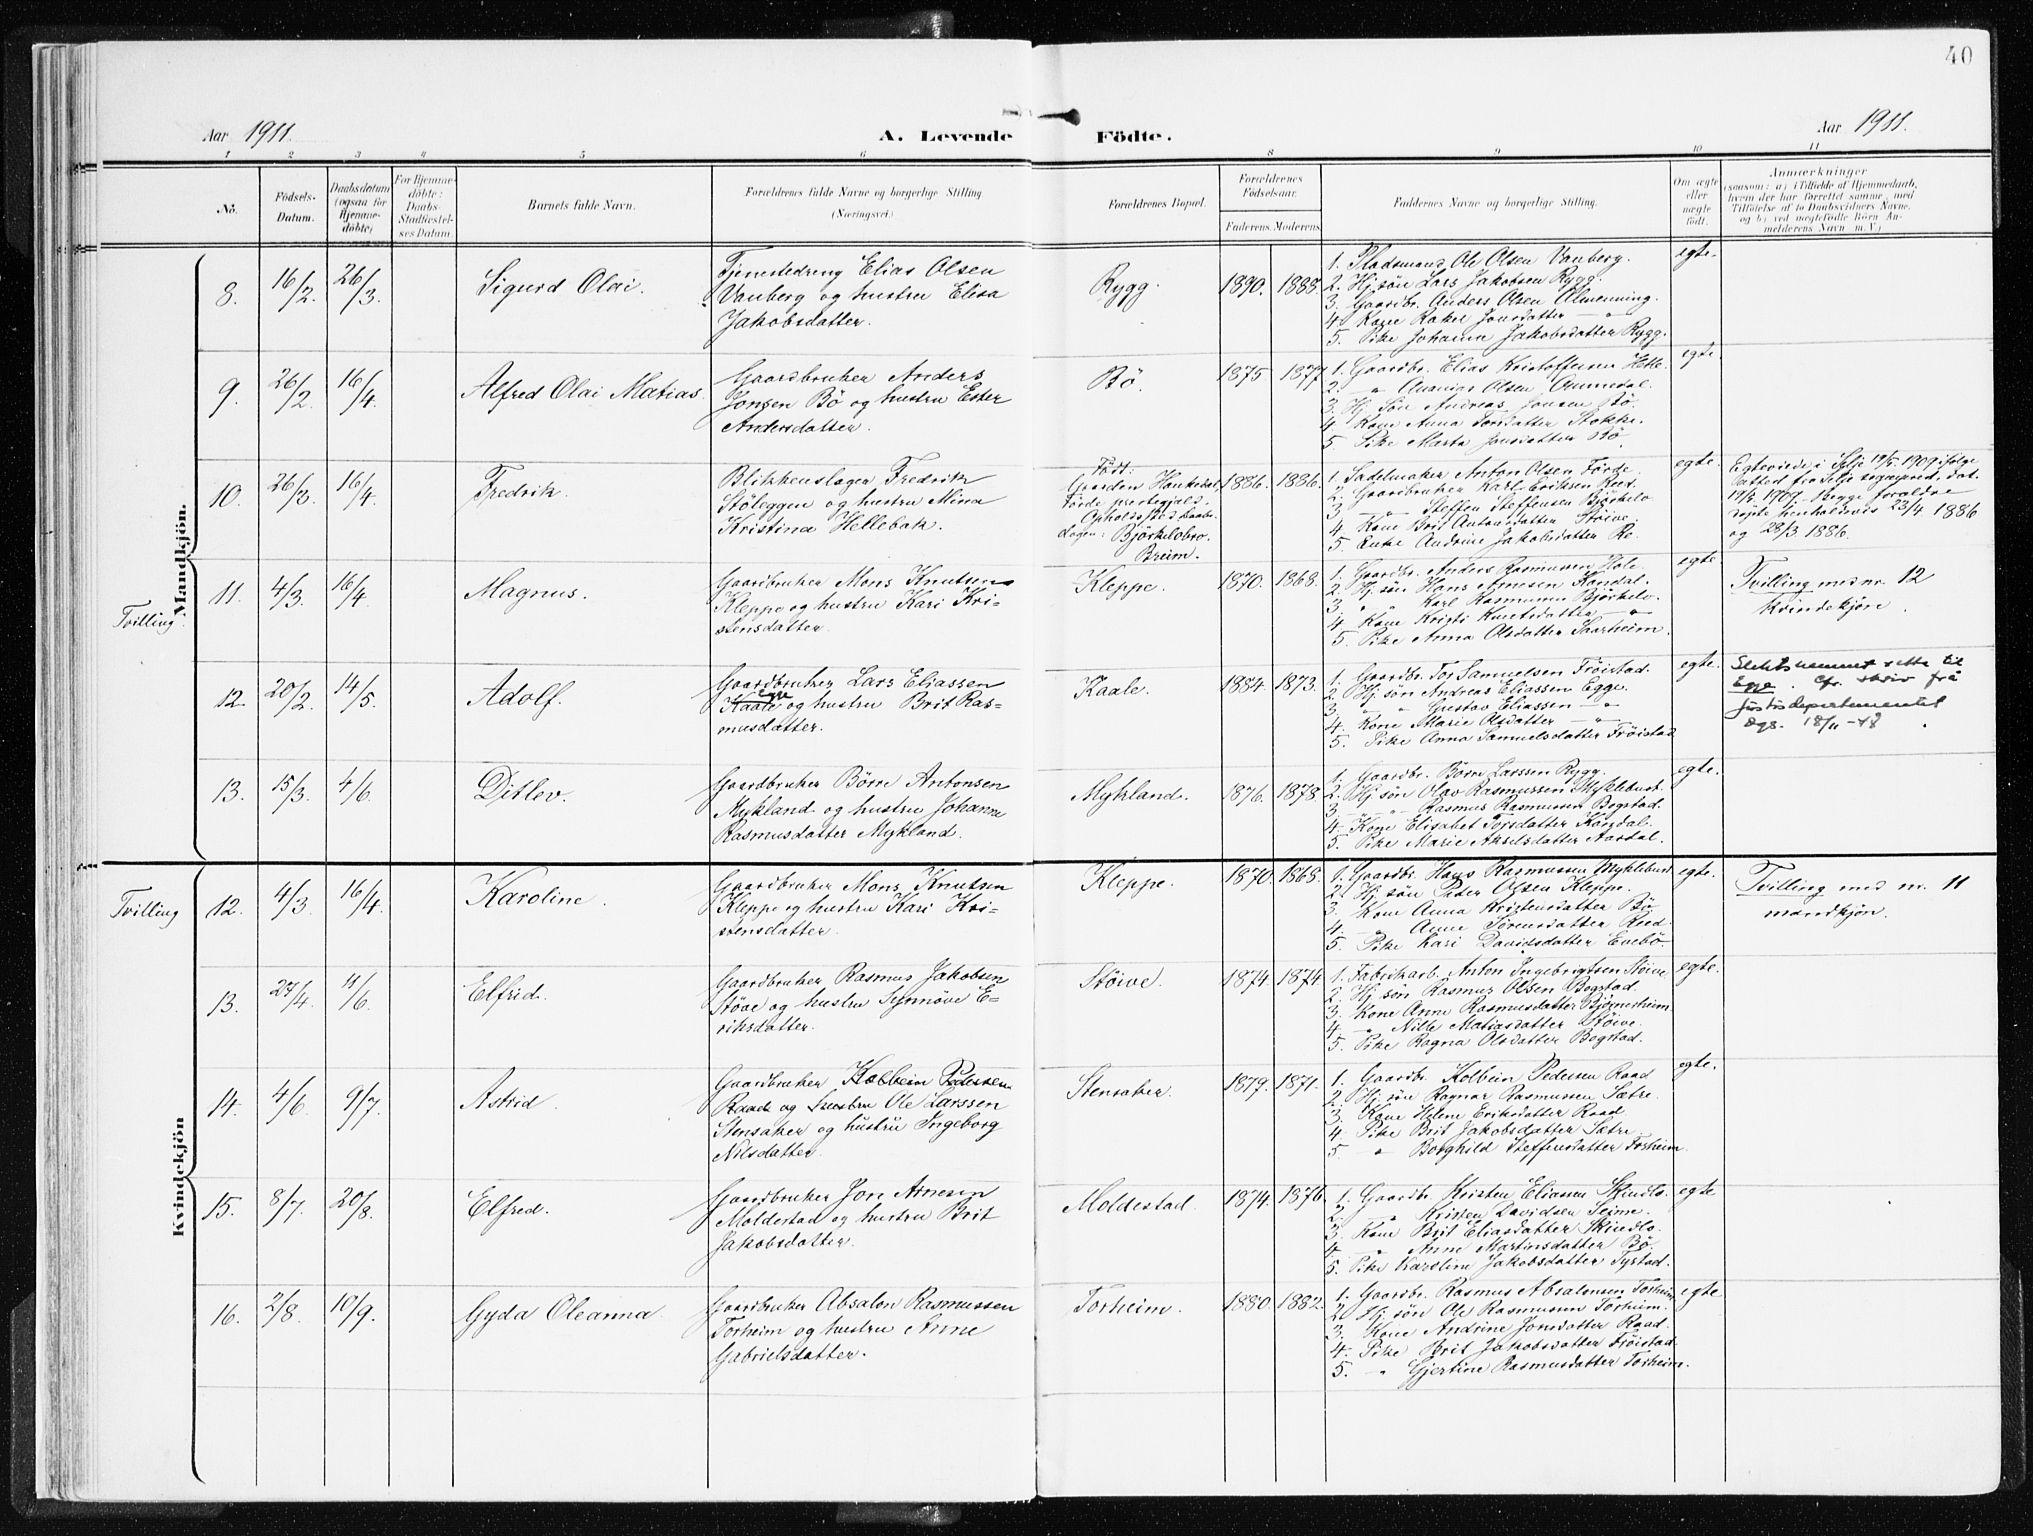 40
Aar 1911.
A. Levende
Födte.
Aar 1911.
1 2 3 4 5 6 8 9 10 11
No.
Födsels-
Datum.
Daabsdatum
(ogsaa for
Hjemme-
döbte)
For Hjemme-
döbte:
Daabs-
Stadfæstel-
ses Datum.
Barnets fulde Navn.
Forældrenes fulde Navne og borgerlige Stilling
(Næringsvei.)
Forældrenes Bopæl.
Forældrenes
Födselsaar.
Faderens. Moderens.
Faddernes Navne og borgerlige Stilling.
Om ægte
eller
uægte
födt.
Anmærkninger
(saasom: a) i Tilfælde af Hjemmedaab,
hvem der har forrettet samme, med
Tilföielse af to Daabsvidners Navne,
og b) ved uægtefödte Börn An-
melderens Navn m. V.)
Mandkjön.
8. 16/2. 26/3. Sigurd Olai.
Tjenestedreng Elias Olsen
Vanberg og hustru Elisa
Jakobsdatter.
Rygg. 1890. 1888.
1. Pladsmand Ole Olsen Vanberg.
2. Hj. søn Lars Jakobsen Rygg.
3. Gaardbr. Anders Olsen Almenning.
4. Kone Rakel Jonsdatter — " —
5. Pike Johanna Jakobsdatter Rygg.
egte.
9. 26/2. 16/4. Alfred Olai Matias.
Gaardbruker Anders
Jonsen Bö og hustru Ester
Andersdatter.
Bö. 1875 1877.
1. Gaardbr. Elias Kristoffersen Hetle.
2. " Ananias Olsen Ommedal.
3. Hj. Søn Andreas Jonsen Bö.
4. Kone Anna Tomsdatter Stokke.
5. Pike Marta Jonsdatter Bö.
egte.
10. 26/3. 16/4. Fredrik.
Blikkenslager Fredrik
Støleggen og hustru Mina
Kristina Hellebak.
Født:
Gaarden Hankedal,
Førde prestegjeld.
Opholdssted daabs-
dagen: Bjørkelobro.
Breim.
1886. 1886.
1. Sadelmaker Anton Olsen Førde.
2. Gaardbruker Karl Eriksen Reed.
3. — " — Steffen Steffensen Bjørkelo
4. Kone Brit Antonsdatter Støive.
5. Enke Andrine Jakobsdatter Re.
egte.
Egteviede i Selje 19/5 1909 ifølge
attest fra Selje sogneprest, dat.
Begge foreldre
døpte henholdsvis 23/4 1886
og 28/3 1886.
Tvilling.
11. 4/3. 16/4. Magnus.
Gaardbruker Mons Knutsen
Kleppe og hustru Kari Kri-
stensdatter.
Kleppe. 1870. 1868.
1. Gaardbr. Anders Rasmussen Hole.
2. Hj. søn Hans Arnesen Kandal.
3. " " Karl Rasmussen Bjørkelo.
4. Kone Kristi Knutsdatter — " —
5. Pike Anna Olsdatter Saarheim.
egte.
Tvilling med nr. 12
kvindekjøn.
12. 20/2. 14/5. Adolf.
Gaardbruker Lars Eliassen
Egge
Kaale og hustru Brit Ras-
musdatter.
Kaale. 1884. 1873.
1. Gaardbr. Toj Samuelsen Frøistad.
2. Hj. søn Andreas Eliassen Egge.
3. " " Gustav Eliassen — " —
4. Kone Marie Olsdatter — " —
5. Pike Anna Samuelsdatter Frøistad
egte.
Slektsnemnet rette til
Egge. Cfr. skriv frå
Justisdepartementet
dgs. 18/11-48
13. 15/3. 4/6. Ditlev.
Gaardbruker Børre Antonsen
Mykland og hustru Johanne
Rasmusdatter Mykland.
Mykland. 1876. 1878.
1. Gaardbr. Børre Larssen Rygg.
2. Hj. søn Olav Rasmussen Myklebust.
3. " " Rasmus Rasmussen Bogstad.
4. Kone Elisabet Tojsdatter Kandal.
5. Pike Marie Akselsdatter Aardal.
egte.
Kvindekjön
Tvilling
12. 4/3. 16/4. Karoline.
Gaardbruker Mons Knutsen
Kleppe og hustru Kari Kri-
stensdatter.
Kleppe. 1870. 1868.
1. Gaardbr. Hans Rasmussen Myklebust
2. Hj. søn Peder Olsen Kleppe.
3. Kone Anna Kristensdatter Bö
4. — " — Anne Sørensdatter Reed.
5. Pike Kari Davidsdatter Evebö
egte.
Tvilling med nr. 11
mandkjøn.
13. 27/4. 11/6. Elfrid.
Gaardbruker Rasmus Jakobsen
Støve og hustru Synnøve E-
riksdatter.
Støive. 1874. 1874.
1. Fabrikarb. Anton Ingebrigtsen Støive
2. Hj. søn Rasmus Olsen Bogstad.
3. Kone Anne Rasmusdatter Bjørnereim.
4. — " — Nille Matiasdatter Støive.
5. Pike Ragna Olsdatter Bogstad.
egte.
14. 4/6. 9/7. Astrid.
Gaardbruker Kolbein Pedersen
Raad og hustru Ole Larssen
Stensaker og hustru Ingeborg
Nilsdatter.
Stensaker. 1879. 1871.
1. Gaardbr. Kolbein Pedersen Raad
2. Hj. søn Ragnar Rasmussen Sætre.
3. Kone Helene Eriksdatter Raad.
4. Pike Brit Jakobsdatter Sætre.
5. — " — Borghild Steffensdatter Torheim.
egte.
15. 8/7. 20/8. Elfred.
Gaardbruker Jon Arnesen
Moldestad og hustru Brit
Jakobsdatter.
Moldestad. 1874. 1876.
1. Gaardbr. Kristen Eliassen Skindlo.
2. — " — Kristen Davidsen Seime.
3. Kone Brit Eliasdatter Skindlo.
4. — " — Anne Martinsdatter Bö.
5. Pike Karoline Jakobsdatter Systad.
egte
16. 2/8. 10/9. Gyda Oleanna.
Gaardbruker Absalon Rasmussen
Torheim og hustru Anne
Gabrielsdatter.
Torheim. 1880. 1882.
1. Gaardbr. Rasmus Absalonsen Torheim
2. Hj. søn Ole Rasmussen Torheim.
3. Kone Andrine Jonsdatter Raad.
4. Pike Brit Jakobsdatter Frøistad.
5. — " — Gjertine Rasmusdatter Torheim.
egte